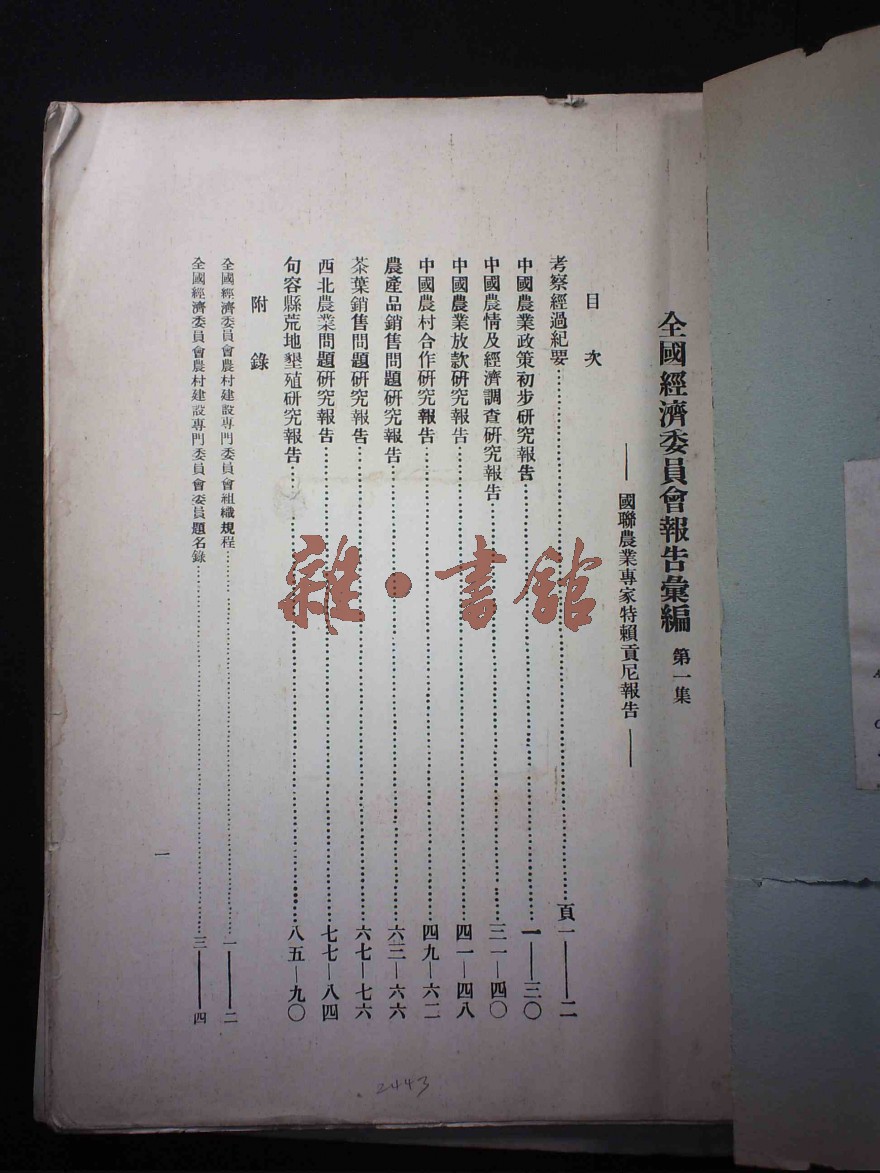 全國經濟委員會報告彙編 第一集
—— 國聯農業專家特賴貢尼報告 ——
目 次
考察經過紀要……頁一——二
中國農業政策初步研究報告……一——三〇
中國農情及經濟調查研究報告……三一—四〇
中國農業放款研究報告……四一—四八
中國農村合作研究報告……四九—六二
農產品銷售問題研究報告……六三—六六
茶葉銷售問題研究報告……六七—七六
西北農業問題研究報告……七七—八四
句容縣荒地墾殖研究報告……八五—九〇
附 錄
全國經濟委員會農村建設專門委員會組織規程……一——二
全國經濟委員會農村建設專門委員會委員題名錄……三——四
一
2443
雜·書館